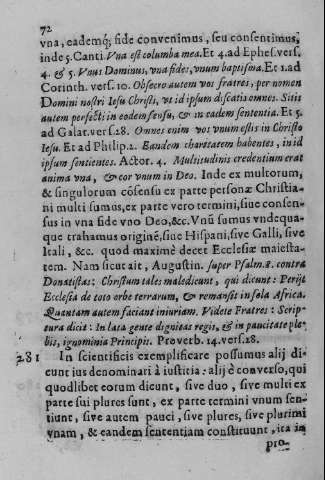 72
vna, eademq; fide convenimus, seu consentimus,
inde 5. Canti. Vna est columba mea. Et 4. ad Ephes. vers.
4. & 5. Vnus Dominus, vna fides, vnum baptisma. Et 1. ad
Corinth. vers. 10. Obsecro autem vos fratres, per nomen
Domini nostri Iesu Christi, vt id ipsum dicatis omnes. Sitis
autem perfecti in eodem sensu, & in eadem sententia. Et 5.
ad Galat. vers. 28. Omnes enim vos vnum estis in Christo
Iesu. Et ad Philip. 2. Eandem charitatem habentes, in id
ipsum sentientes. Actor. 4. Multitudinis credentium erat
anima vna, & cor vnum in Deo. Inde ex multorum,
& singulorum cōsensu ex parte personæ Christia-
ni multi sumus, ex parte vero termini, siue consen-
sus in vna fide vno Deo, &c. Vnū sumus vndequa-
que trahamus originē, siue Hispani, sive Galli, sive
Itali, &c. quod maximè decet Ecclesiæ maiesta-
tem. Nam sicut ait, Augustin. super Psalm. 8. contra
Donatistas: Christum tales maledicunt, qui dicunt: Perijt
Ecclesia de toto orbe terrarum, & remansit in sola Africa.
Quantam autem faciant iniuriam. Videte Fratres: Scrip-
tura dicit: In lata gente dignitas regis, & in paucitate ple-
bis, ignominia Principis. Proverb. 14. vers. 28.
281 In scientificis exemplificare possumus alij di-
cunt ius denominari à iustitia: alij è converso, qui
quodlibet eorum dicunt, sive duo, sive multi ex
parte sui plures sunt, ex parte termini vnum sen-
tiunt, sive autem pauci, sive plures, sive plurimi
vnam, & eandem sententiam constituunt, ita in
pro-